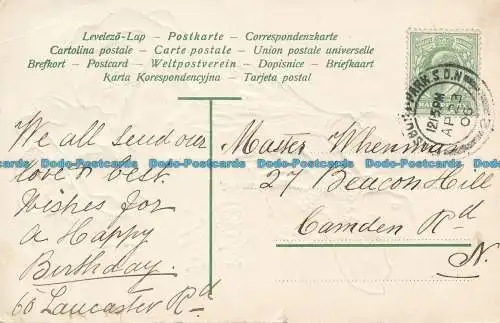 Levelező-Lap — Postkarte — Correspondenzkarte
Cartolina postale — Carte postale — Union postale universelle
Brefkort — Postcard — Weltpostverein — Dopisnice — Briefkaart
Karta Korespondencyjna — Tarjeta postal
We all send our
love & best
Wishes for
A Happy
Birthday.
60 Lancaster Rd
Master Whenman
27 Beacon Hill
Camden Rd
N.
Dodo-Postcards Dodo-Postcards Dodo-Postcards Dodo-Postcards Dodo-Postcards Dodo-Postcards